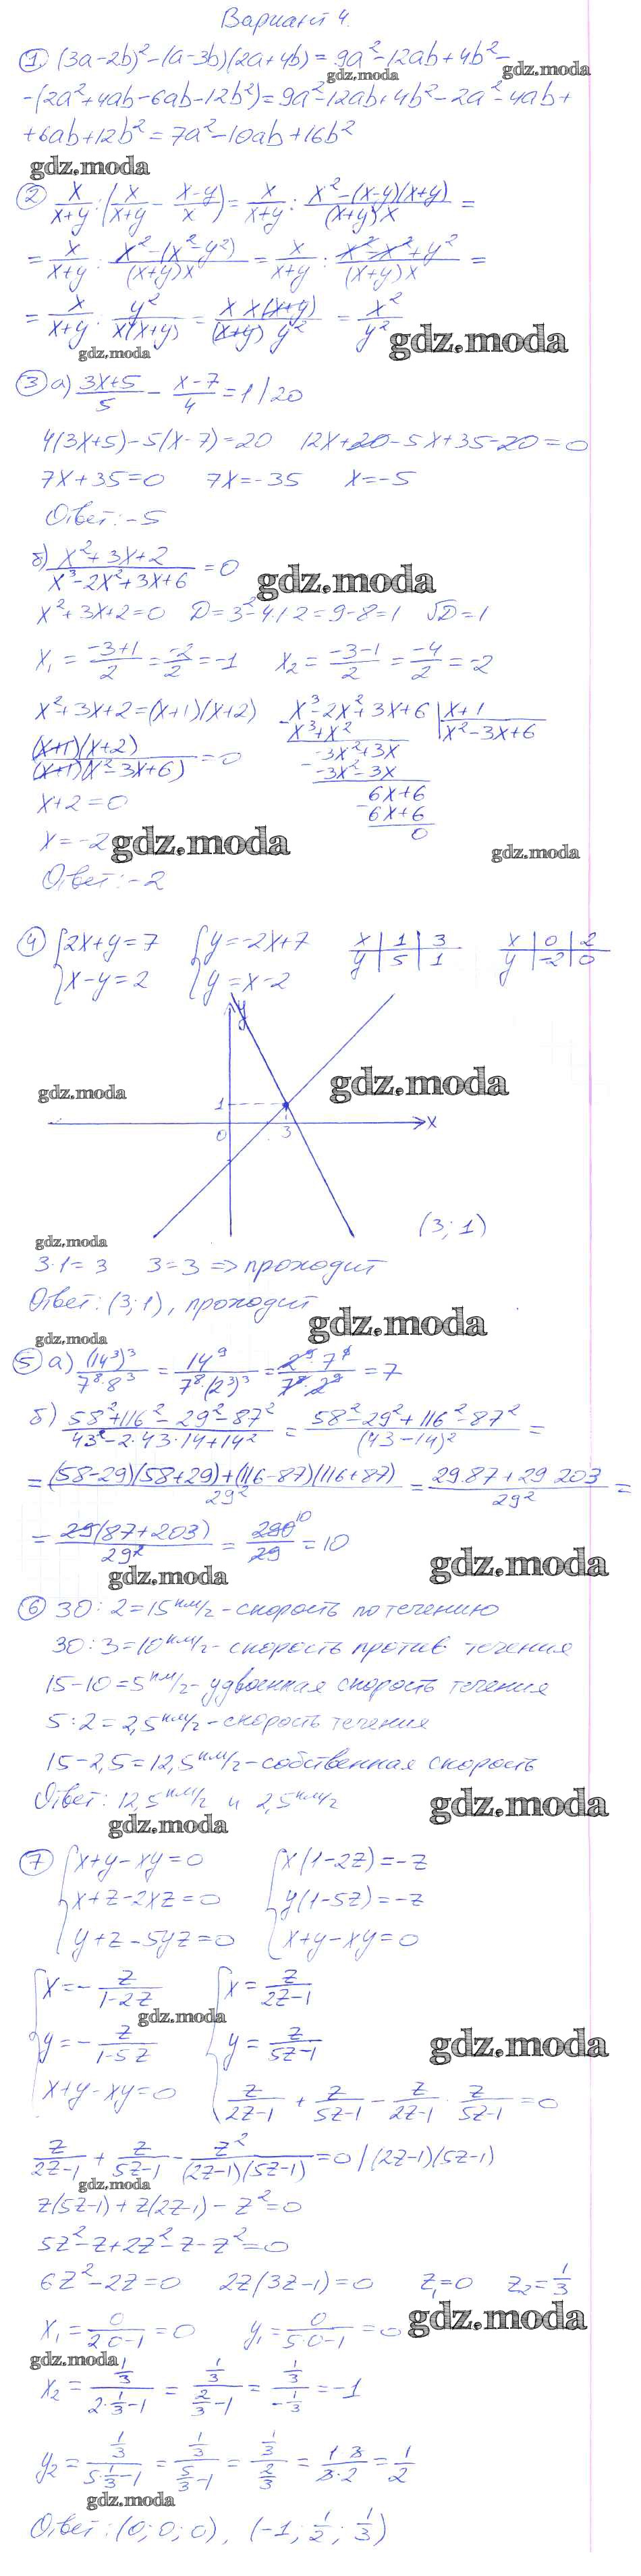 Вариант 4.
① (3a-2b)²-(a-3b)(2a+4b)=9a²-12ab+4b²-
gdz.moda gdz.moda
-(2a²+4ab-6ab-12b²)=9a²-12ab+4b²-2a²-4ab+
+6ab+12b²=7a²-10ab+16b²
gdz.moda
② x/(x+y) : (x/(x+y) - (x-y)/x) = x/(x+y) : (x²-(x-y)(x+y))/((x+y)x) =
= x/(x+y) : (x²-(x²-y²))/((x+y)x) = x/(x+y) : (x²-x²+y²)/((x+y)x) =
= x/(x+y) : y²/(x(x+y)) = (x x(x+y))/((x+y) y²) = x²/y²
gdz.moda gdz.moda
③ а) (3x+5)/5 - (x-7)/4 = 1 | 20
4(3x+5)-5(x-7)=20 12x+20-5x+35-20=0
7x+35=0 7x=-35 x=-5
Ответ: -5
б) (x²+3x+2)/(x³-2x²+3x+6) = 0 gdz.moda
x²+3x+2=0 D=3²-4·1·2=9-8=1 √D=1
x₁=(-3+1)/2=-2/2=-1 x₂=(-3-1)/2=-4/2=-2
x²+3x+2=(x+1)(x+2) x³-2x²+3x+6 | x+1
x³+x² x²-3x+6
((x+1)(x+2))/((x+1)(x²-3x+6)) = 0 -3x²+3x
-3x²-3x
x+2=0 6x+6
6x+6
x=-2 gdz.moda 0
gdz.moda
Ответ: -2
④ {2x+y=7 {y=-2x+7 x | 1 | 3 x | 0 | 2
x-y=2 y=x-2 y | 5 | 1 y | -2 | 0
y
gdz.moda gdz.moda
1
0 3 x
(3; 1)
gdz.moda
3·1=3 3=3 => проходит
Ответ: (3; 1), проходит
gdz.moda gdz.moda
⑤ а) (14³)³/(7⁸·8³) = 14⁹/(7⁸·(2³)³) = (2⁹·7⁹)/(7⁸·2⁹) = 7
б) (58²+116²-29²-87²)/(43²-2·43·14+14²) = (58²-29²+116²-87²)/(43-14)² =
= ((58-29)(58+29)+(116-87)(116+87))/29² = (29·87+29·203)/29² =
= 29(87+203)/29² = 290/29 = 10
10
gdz.moda gdz.moda
⑥ 30:2=15 км/ч - скорость по течению
30:3=10 км/ч - скорость против течения
15-10=5 км/ч - удвоенная скорость течения
5:2=2,5 км/ч - скорость течения
15-2,5=12,5 км/ч - собственная скорость
Ответ: 12,5 км/ч и 2,5 км/ч
gdz.moda gdz.moda
⑦ {x+y-xy=0 {x(1-2z)=-z
x+z-2xz=0 y(1-5z)=-z
y+z-5yz=0 x+y-xy=0
{x=-z/(1-2z) {x=z/(2z-1)
gdz.moda
y=-z/(1-5z) y=z/(5z-1) gdz.moda
x+y-xy=0 z/(2z-1) + z/(5z-1) - z/(2z-1) · z/(5z-1) = 0
z/(2z-1) + z/(5z-1) - z²/((2z-1)(5z-1)) = 0 | (2z-1)(5z-1)
gdz.moda
z(5z-1)+z(2z-1)-z²=0
5z²-z+2z²-z-z²=0
6z²-2z=0 2z(3z-1)=0 z₁=0 z₂=1/3
x₁=0/(2·0-1)=0 y₁=0/(5·0-1)=0 gdz.moda
gdz.moda
x₂=(1/3)/(2·1/3-1) = (1/3)/(2/3-1) = (1/3)/(-1/3) = -1
y₂=(1/3)/(5·1/3-1) = (1/3)/(5/3-1) = (1/3)/(2/3) = (1·3)/(3·2) = 1/2
gdz.moda
Ответ: (0; 0; 0), (-1; 1/2; 1/3)